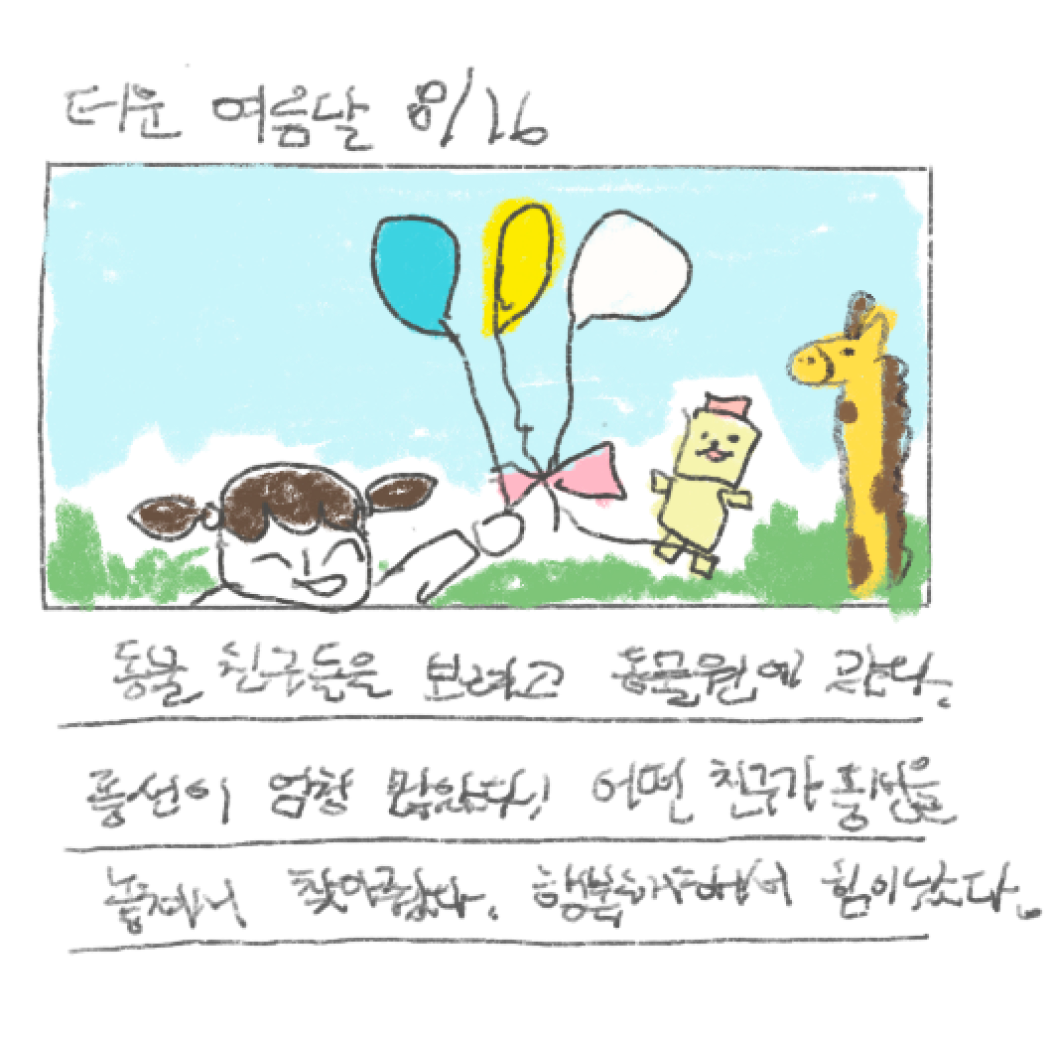 더운 여름날 8/16
동물 친구들을 보려고 동물원에 갔다.
풍선이 엄청 많았다! 어떤 친구가 풍선을
놓쳐서 찾아줬다. 행복해해서 힘이났다.